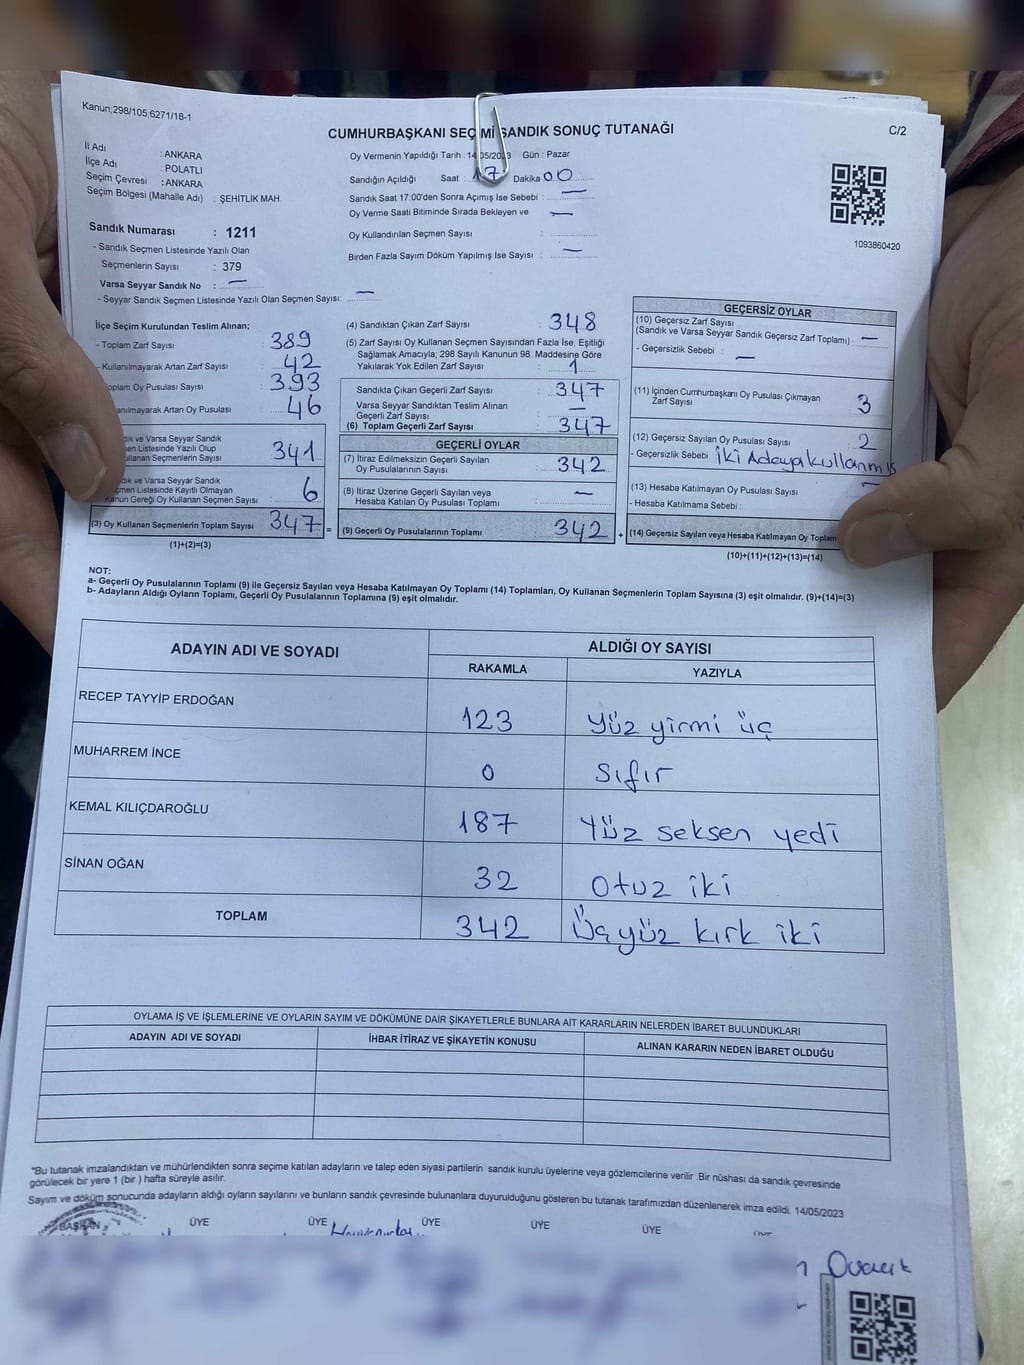 Kanun;298/105;6271/18-1
CUMHURBAŞKANI SEÇİMİ SANDIK SONUÇ TUTANAĞI
C/2
İl Adı : ANKARA
İlçe Adı : POLATLI
Seçim Çevresi : ANKARA
Seçim Bölgesi (Mahalle Adı) : ŞEHİTLİK MAH.
Oy Vermenin Yapıldığı Tarih : 14/05/2023 Gün : Pazar
Sandığın Açıldığı Saat : 17 Dakika 00
Sandık Saat 17:00'den Sonra Açımış İse Sebebi : —
Oy Verme Saati Bitiminde Sırada Bekleyen ve —
Oy Kullandırılan Seçmen Sayısı :
Birden Fazla Sayım Döküm Yapılmış İse Sayısı : —
1093860420
Sandık Numarası : 1211
- Sandık Seçmen Listesinde Yazılı Olan
Seçmenlerin Sayısı : 379
Varsa Seyyar Sandık No : —
- Seyyar Sandık Seçmen Listesinde Yazılı Olan Seçmen Sayısı: —
İlçe Seçim Kurulundan Teslim Alınan;
- Toplam Zarf Sayısı : 389
- Kullanılmayarak Artan Zarf Sayısı : 42
Toplam Oy Pusulası Sayısı : 393
Artan Oy Pusulası : 46
ve Varsa Seyyar Sandık
Listesinde Yazılı Olup
Seçmenlerin Sayısı : 341
ve Varsa Seyyar Sandık
Listesinde Kayıtlı Olmayan
Kanun Gereği Oy Kullanan Seçmen Sayısı : 6
(3) Oy Kullanan Seçmenlerin Toplam Sayısı : 347 =
(1)+(2)=(3)
(4) Sandıktan Çıkan Zarf Sayısı : 348
(5) Zarf Sayısı Oy Kullanan Seçmen Sayısından Fazla İse, Eşitliği
Sağlamak Amacıyla, 298 Sayılı Kanunun 98. Maddesine Göre
Yakılarak Yok Edilen Zarf Sayısı : 1
Sandıkta Çıkan Geçerli Zarf Sayısı : 347
Varsa Seyyar Sandıktan Teslim Alınan
Geçerli Zarf Sayısı : —
(6) Toplam Geçerli Zarf Sayısı : 347
GEÇERLİ OYLAR
(7) İtiraz Edilmeksizin Geçerli Sayılan
Oy Pusulalarının Sayısı : 342
(8) İtiraz Üzerine Geçerli Sayılan veya
Hesaba Katılan Oy Pusulası Toplamı : —
(9) Geçerli Oy Pusulalarının Toplamı : 342 +
GEÇERSİZ OYLAR
(10) Geçersiz Zarf Sayısı
(Sandık ve Varsa Seyyar Sandık Geçersiz Zarf Toplamı) : —
- Geçersizlik Sebebi : —
(11) İçinden Cumhurbaşkanı Oy Pusulası Çıkmayan
Zarf Sayısı 3
(12) Geçersiz Sayılan Oy Pusulası Sayısı 2
- Geçersizlik Sebebi iki Adaya kullanmış
(13) Hesaba Katılmayan Oy Pusulası Sayısı —
- Hesaba Katılmama Sebebi :
(14) Geçersiz Sayılan veya Hesaba Katılmayan Oy Toplam
(10)+(11)+(12)+(13)=(14)
NOT:
a- Geçerli Oy Pusulalarının Toplamı (9) ile Geçersiz Sayılan veya Hesaba Katılmayan Oy Toplamı (14) Toplamları, Oy Kullanan Seçmenlerin Toplam Sayısına (3) eşit olmalıdır. (9)+(14)=(3)
b- Adayların Aldığı Oyların Toplamı, Geçerli Oy Pusulalarının Toplamına (9) eşit olmalıdır.
ADAYIN ADI VE SOYADI
ALDIĞI OY SAYISI
RAKAMLA YAZIYLA
RECEP TAYYİP ERDOĞAN 123 Yüz yirmi üç
MUHARREM İNCE 0 Sıfır
KEMAL KILIÇDAROĞLU 187 Yüz seksen yedi
SİNAN OĞAN 32 Otuz iki
TOPLAM 342 Üçyüz kırk iki
OYLAMA İŞ VE İŞLEMLERİNE VE OYLARIN SAYIM VE DÖKÜMÜNE DAİR ŞİKAYETLERLE BUNLARA AİT KARARLARIN NELERDEN İBARET BULUNDUKLARI
ADAYIN ADI VE SOYADI İHBAR İTİRAZ VE ŞİKAYETİN KONUSU ALINAN KARARIN NEDEN İBARET OLDUĞU
*Bu tutanak imzalandıktan ve mühürlendikten sonra seçime katılan adayların ve talep eden siyasi partilerin sandık kurulu üyelerine veya gözlemcilerine verilir. Bir nüshası da sandık çevresinde
görülecek bir yere 1 (bir ) hafta süreyle asılır.
Sayım ve döküm sonucunda adayların aldığı oyların sayılarını ve bunların sandık çevresinde bulunanlara duyurulduğunu gösteren bu tutanak tarafımızdan düzenlenerek imza edildi. 14/05/2023
BAŞKAN ÜYE ÜYE ÜYE ÜYE ÜYE ÜYE